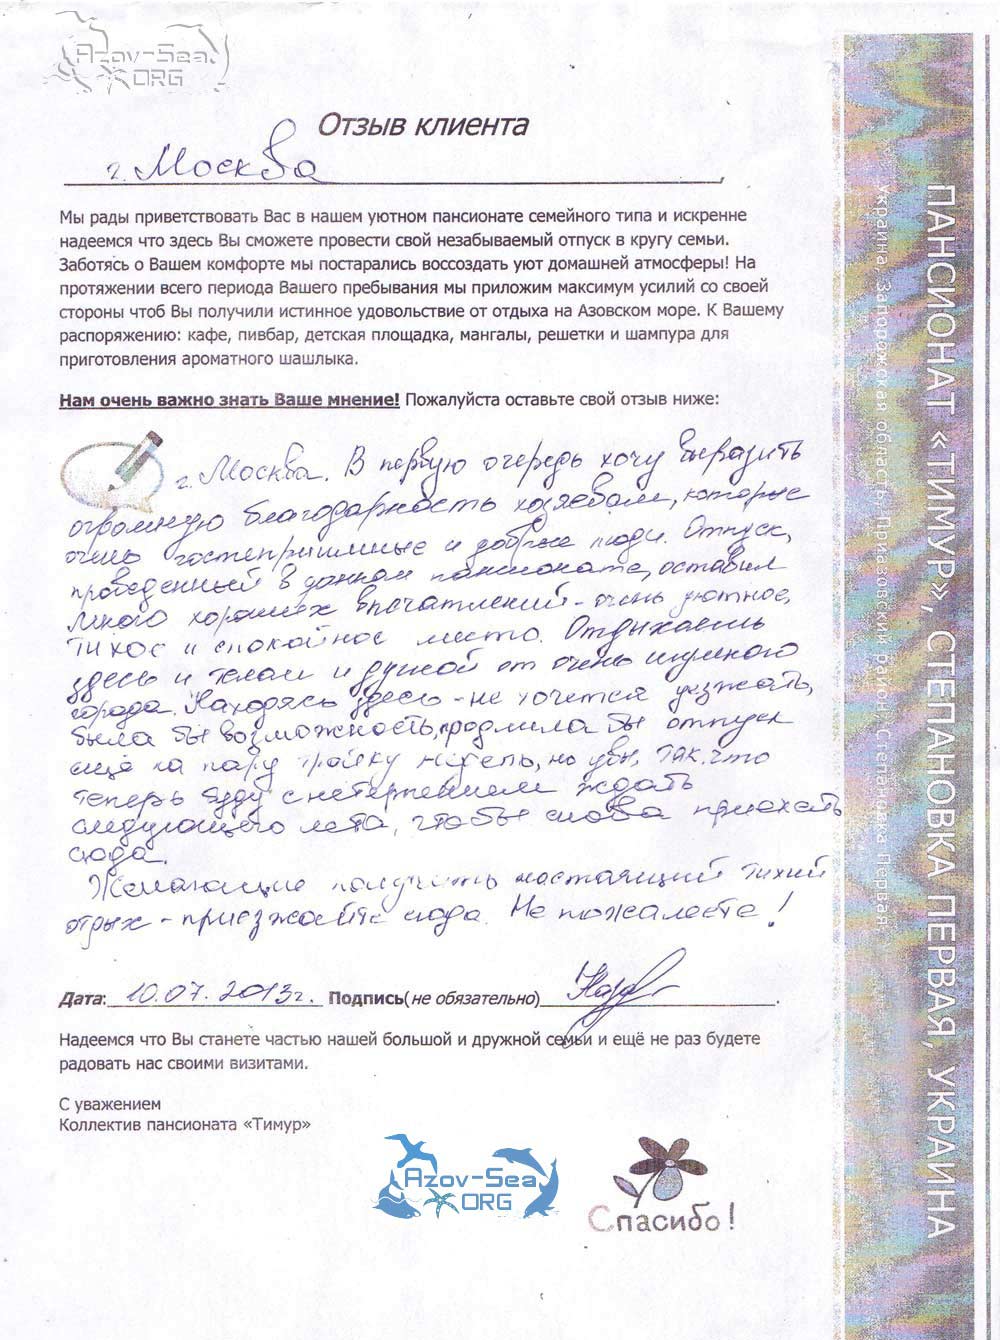 Azov-Sea
ORG
Отзыв клиента
г. Москва
Мы рады приветствовать Вас в нашем уютном пансионате семейного типа и искренне
надеемся что здесь Вы сможете провести свой незабываемый отпуск в кругу семьи.
Заботясь о Вашем комфорте мы постарались воссоздать уют домашней атмосферы! На
протяжении всего периода Вашего пребывания мы приложим максимум усилий со своей
стороны чтоб Вы получили истинное удовольствие от отдыха на Азовском море. К Вашему
распоряжению: кафе, пивбар, детская площадка, мангалы, решетки и шампура для
приготовления ароматного шашлыка.
Нам очень важно знать Ваше мнение! Пожалуйста оставьте свой отзыв ниже:
г. Москва. В первую очередь хочу выразить
огромную благодарность хозяевам, которые
очень гостеприимные и добрые люди. Отпуск,
проведенный в данном пансионате, оставил
много хороших впечатлений - очень уютное,
тихое и спокойное место. Отдыхаешь
здесь и телом и душой от очень шумного
города. Находясь здесь - не хочется уезжать,
была бы возможность, продлила бы отпуск
ещё на пару тройку недель, но увы, так что
теперь буду с нетерпением ждать
следующего лета, чтобы снова приехать
сюда.
Желающие получить настоящий тихий
отдых - приезжайте сюда. Не пожалеете!
Дата: 10.07.2013г. Подпись(не обязательно)
Надеемся что Вы станете частью нашей большой и дружной семьи и ещё не раз будете
радовать нас своими визитами.
С уважением
Коллектив пансионата «Тимур»
Azov-Sea
ORG
Спасибо!
ПАНСИОНАТ «ТИМУР», СТЕПАНОВКА ПЕРВАЯ, УКРАИНА
Украина, Запорожская область, Приазовский район, Степановка Первая